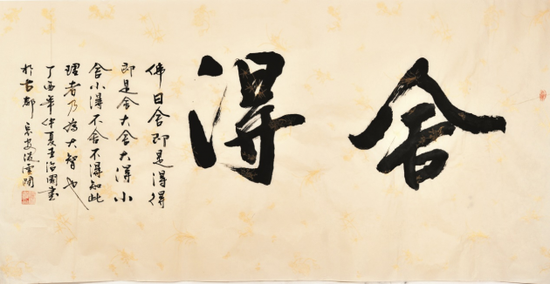 舍得
佛曰舍即是得得
即是舍大舍大得小
舍小得不舍不得知此
理者乃為大智也
丁酉年仲夏王治國書
於古都安凌雲閣